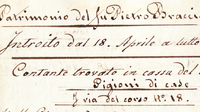 Patrimonio del fu Pietro Bracci
Introito dal 18. Aprile a tutto
Contante trovato in cassa del
Pigioni di case
via del corso N. 18.